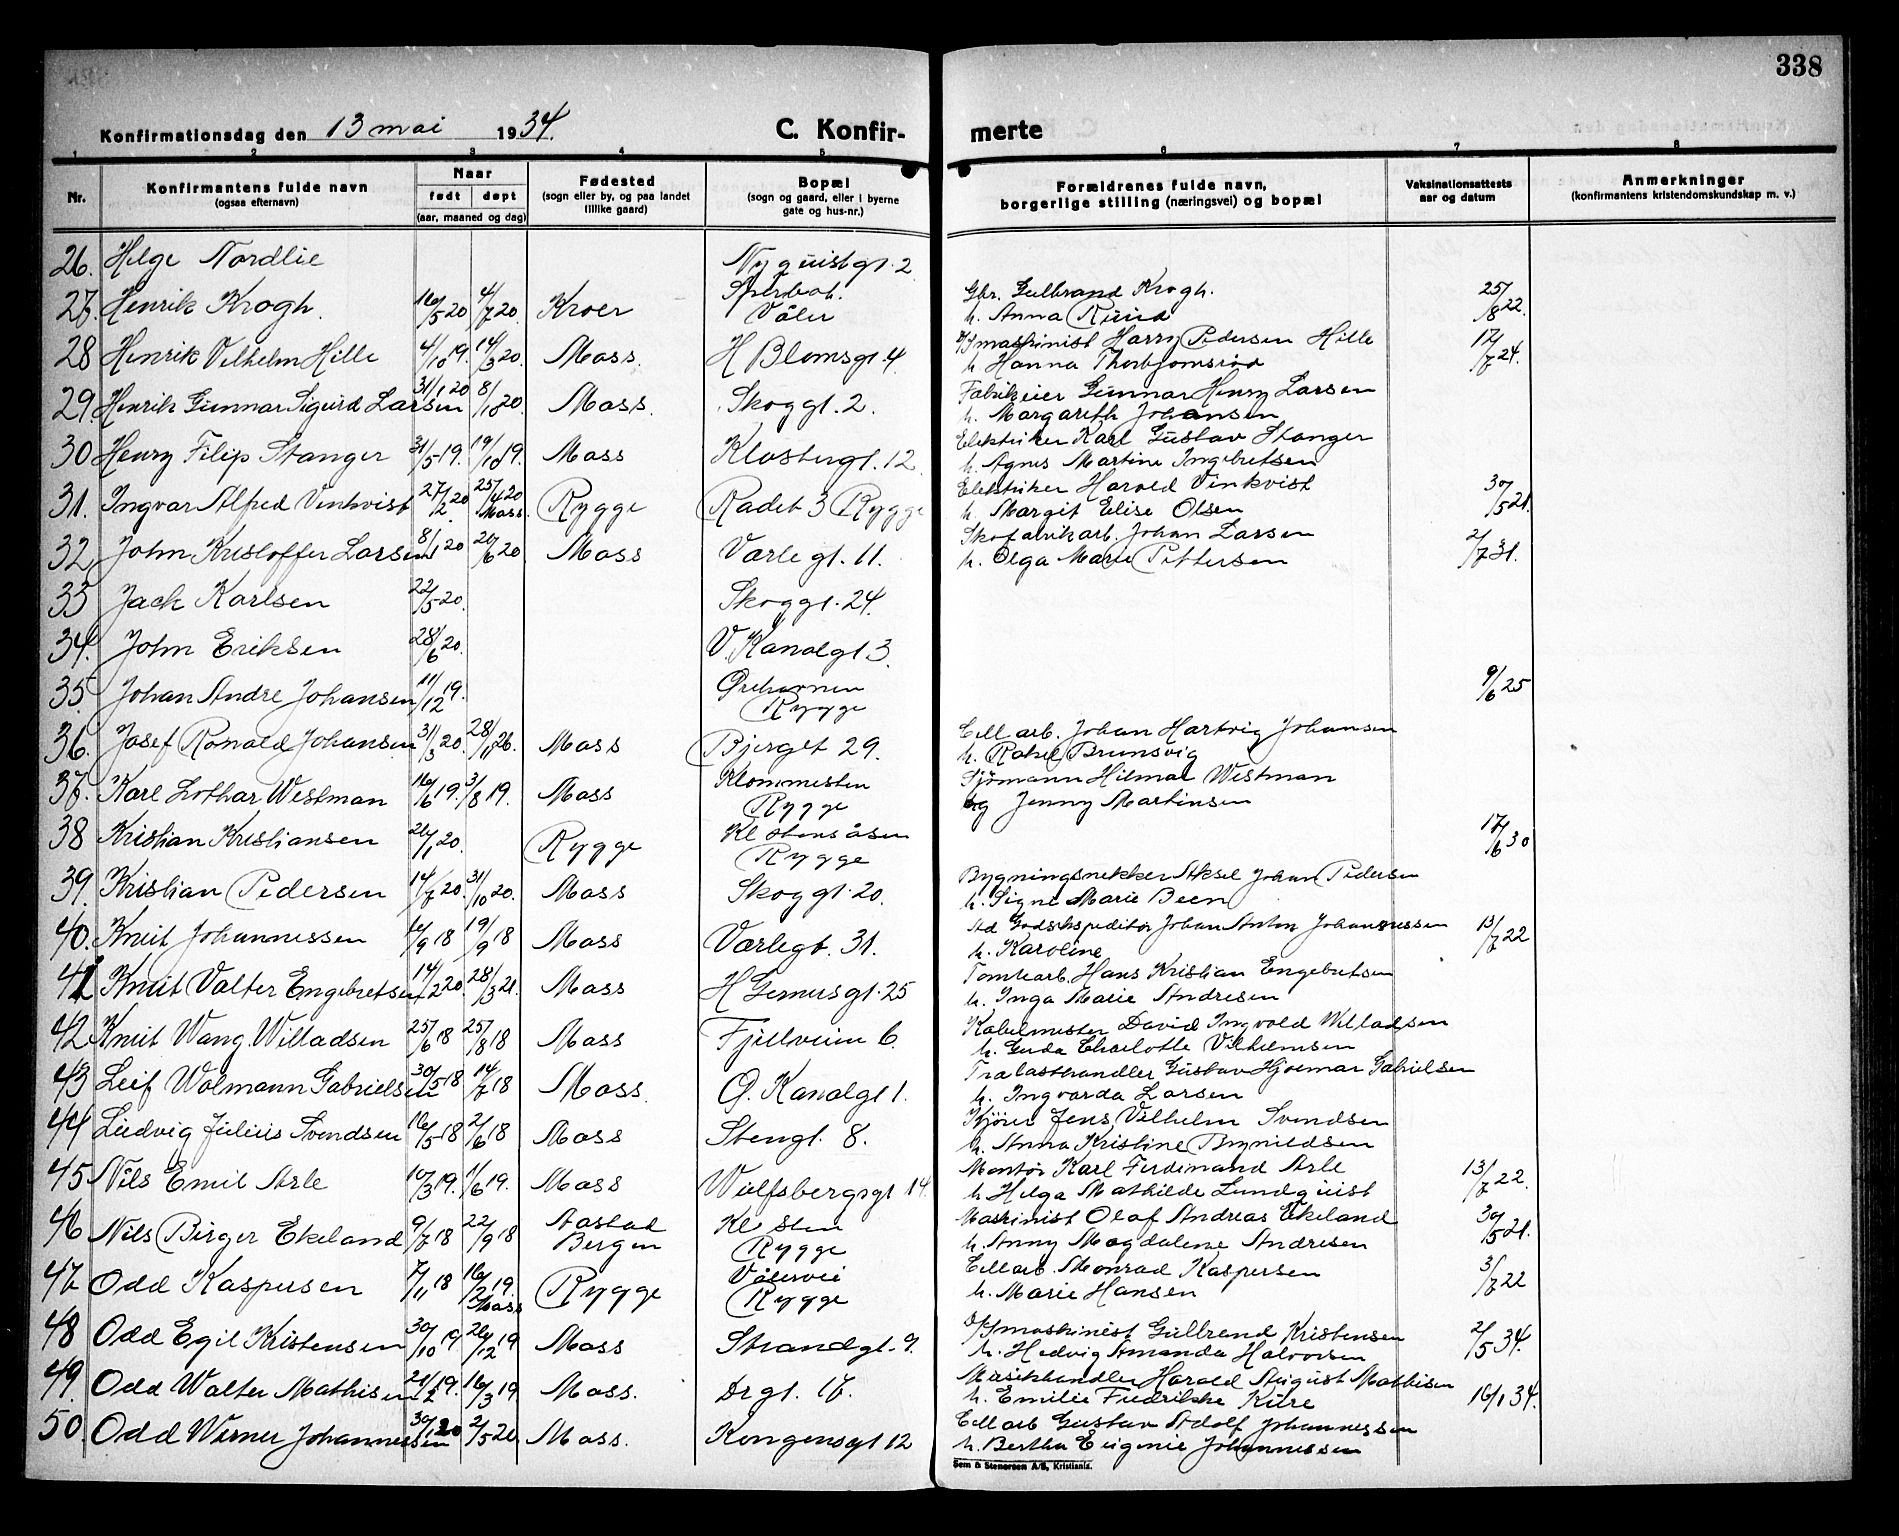 338
Konfirmationsdag den 13 mai 1934.
C. Konfir-
merte
1 2 3 4 5 6 7 8
Nr.
Konfirmantens fulde navn
(ogsaa efternavn)
Naar
født døpt
(aar, maaned og dag)
Fødested
(sogn eller by, og paa landet
tillike gaard)
Bopæl
(sogn og gaard, eller i byerne
gate og hus-nr.)
Forældrenes fulde navn,
borgerlige stilling (næringsvei) og bopæl
Vaksinationsattests
aar og datum
Anmerkninger
(konfirmantens kristendomskundskap m. v.)
26. Helge Nordlie Nyquistgt. 2
27. Henrik Krogh. 16/5 20 4/7 20. Kroer Våler
Gbr. Gulbrand Krogh. 25/8 22.
h. Anna Ruud
28 Henrik Vilhelm Hille 4/10 19. 14/3 20. Moss. H Blomsgt. 4
maskinist Harry Pedersen Hille 17/7 24.
h. Hanna Thorbjørnsrød
29. Henrik Gunnar Sigurd Larsen 31/1 20 8/8 20. Moss. Skoggt. 2.
Fabrikeier Gunnar Henry Larsen
h. Margareth Johansen
30 Henry Filip Stanger 31/5 19. 19/10 19. Moss Klostergt. 12
Elektriker Karl Gustav Stanger
h. Agnes Martine Ingebretsen
31. Ingvar Alfred Vinkvist 27/2 20. 25/4 20 Moss Rygge Radet 3 Rygge
Elektriker Harald Vinkvist 30/5 21.
h. Margit Elise Olsen
32 John Kristoffer Larsen 8/1 20 20/6 20 Moss Varlegt. 11.
Skofabrikarb. Johan Larsen 2/7 31.
h. Olga Marie Pettersen
33 Jack Karlsen 22/5 20. Skoggt. 24.
34. John Eriksen 28/6 20. V. Kanalgt 3.
35. Johan Andre Johansen 11/12 19. Ørehavnen 9/6 25
Rygge
36. Josef Ronald Johansen 31/3 20. 28/11 26. Moss Bjerget 29.
Cell arb. Johan Hartvig Johansen
h. Rakel Brunsvig
37. Karl Lothar Westman 16/6 19. 3/8 19. Moss Klommesten
Rygge
Sjømann Hilmar Westman
og Jenny Martinsen
38 Kristian Kristiansen 20. Rygge Kl Stensåsen 17/6 30
Rygge
39. Kristian Pedersen 14/7 20. 31/10 20. Moss Skoggt. 20.
Bygningsnekker Aksel Johan Pedersen
h. Signe Marie Been
40. Knut Johannessen 9 18 19/9 18 Moss Varlegt. 31.
Ad Godsekspeditør Johan Anton Johannessen 13/7 22
h. Karoline
41 Knut Valter Engebretsen 14/2 20. 28/3 21. Moss H Gernersgt. 25
Tomtearb. Hans Kristian Engebretsen
h. Inga Marie Andresen
42 Knut Wang Willadsen 25/6 18 25/8 18 Moss Fjellveien 6.
Kabelmester David Ingvald Willadsen
h. Guda Charlotte Vilhelmsen
43 Leif Wolmann Gabrielsen 30/5 18 14/7 18 Moss. Ø. Kanalgt 1.
Trælasthandler Gustav Hjalmar Gabrielsen
h. Ingvarda Larsen
44 Ludvig Julius Svendsen 16/5 18 2/6 18 Moss Stengt. 8.
Kjører Jens Vilhelm Svendsen
h. Anna Kristine Brynildsen
45 Nils Emil Arle 10/3 19. 1/6 19. Moss Wulfsbergsgt 14.
Montør Karl Ferdinand Arle 13/7 22.
h. Helga Mathilde Lundquist
46 Nils Birger Ekeland 9/7 18 22/9 18 Aastad
Bergen Kl Sten
Rygge
Maskinist Olaf Andreas Ekeland 30/5 21.
h. Anny Magdalene Andresen
47 Odd Kaspersen 7/11 18 16/2 19. Moss Rygge Vålervei
Rygge
Cellarb. Monrad Kaspersen 3/7 22
h. Marie Hansen
48 Odd Egil Kristensen 30/10 19 26/12 19 Moss Strandgt. 9.
maskinist Gulbrand Kristensen 2/5 34.
h. Hedvig Amanda Halvorsen
49. Odd Walter Mathisen 19. 16/3 19 Moss. Drgt. 17.
Musikhandler Harald August Mathisen
h. Emilie Fredrikke Kure 16/1 34.
50 Odd Werner Johannessen 30/1 20 2/5 20 Moss. Kongensgt 12
Cellarb Gustav Adolf Johannessen
h. Bertha Eugenie Johannessen
Sem & Stenersen A/S, Kristiania.